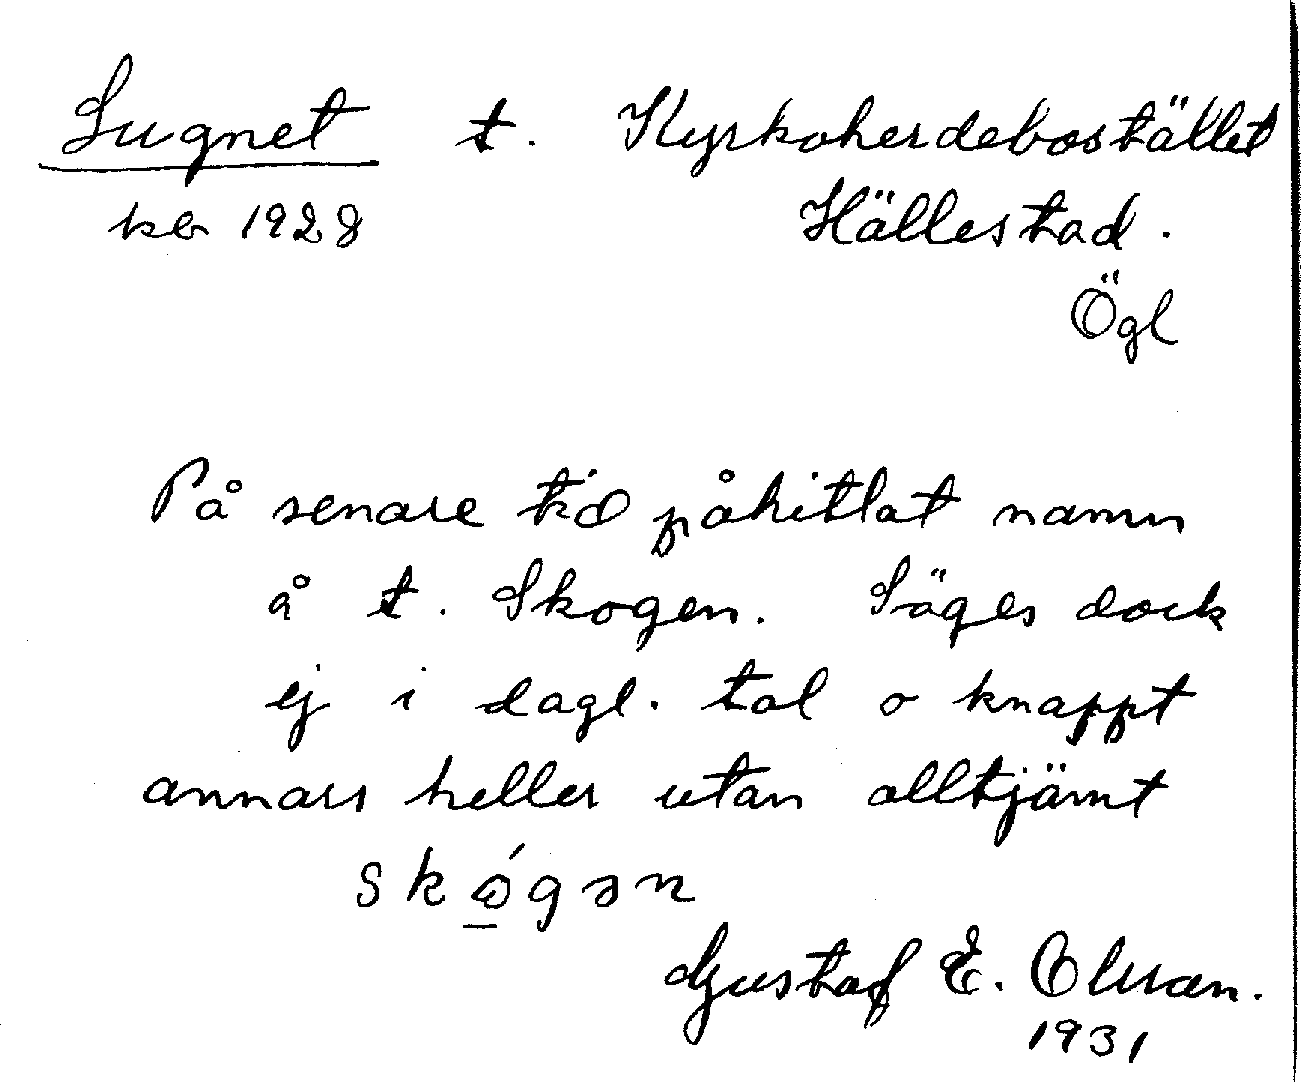 Lugnet t. Kyrkoherdebostället
kb 1928 Hällestad.
Ögl
På senare tid påhittat namn
å t. Skogen. Säges dock
ej i dagl. tal o knappt
annars heller utan alltjämt
skó̲gən
Gustaf E. Olsson.
1931